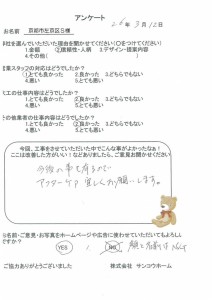 アンケート
26年3月12日
お名前 京都市左京区S様
社を選んでいただいた理由を聞かせてください(○をつけてください)
1.金額 ②信頼性・人柄 3.デザイン・提案内容
4.その他(
業スタッフの対応はどうでしたか?
①とても良かった 2.良かった 3.どちらでもない
4.悪い 5.とても悪い
工の仕事内容はどうでしたか?
1.とても良かった ②良かった 3.どちらでもない
4.悪い 5.とても悪い
の他業者の仕事内容はどうでしたか?
1.とても良かった ②良かった 3.どちらでもない
4.悪い 5.とても悪い
今回、工事をさせていただいた中でこんな事がよかったなぁ!
ここは改善した方がいい!などありましたら、ご意見お聞かせください
今後の事も有るので
アフターケア 宜しくお願いします。
名前・ご意見・お写真をホームページや広告に使わせていただいてもよろしい
ですか?
YES / NO
ご協力ありがとうございました 株式会社 サンコウホーム